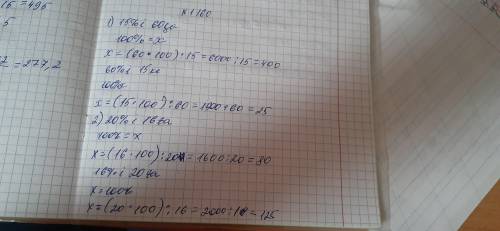 15 = 495
5
= 277,2
N 1160
1) 15% і 60га
100% = x
x = (60 * 100) : 15 = 6000 : 15 = 400
60% і 15 кг
100%
x = (15 · 100) : 60 = 1500 : 60 = 25
2) 20% і 16га
100% = x
x = (16 · 100) : 20 = 1600 : 20 = 80
16% і 20га
x = 100%
x = (20 · 100) : 16 = 2000 : 16 = 125